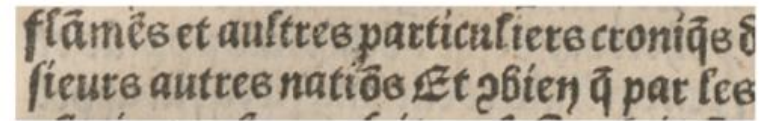 flãmẽs et aultres particuliers croniq̃s d̃
sieurs autres natiõs Et ꝯbien q̃ par les